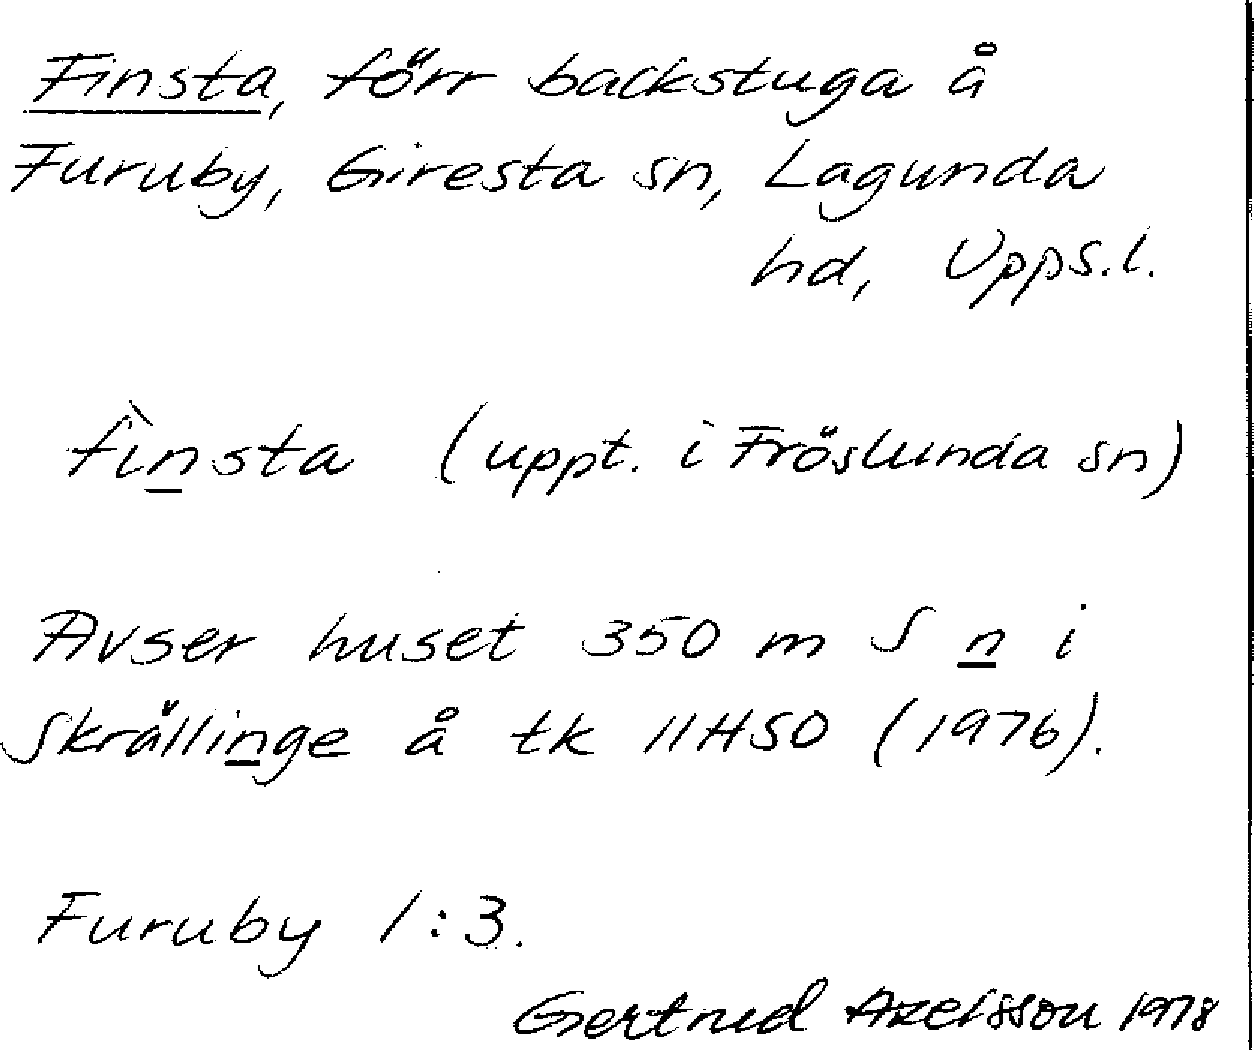 Finsta, förr backstuga å
Furuby, Giresta sn, Lagunda
hd, Upps.l.
fìnsta (uppt. i Fröslunda sn)
Avser huset 350 m S n i
Skrållinge å tk 11H5O (1976).
Furuby 1:3.
Gertrud Axelsson 1978